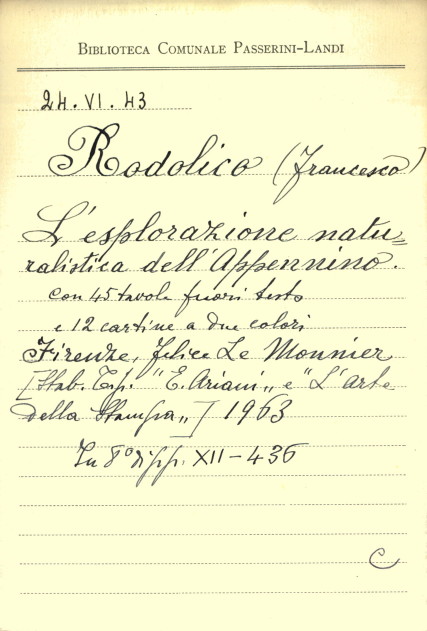 BIBLIOTECA COMUNALE PASSERINI-LANDI
24.VI.43
Rodolico (Francesco)
L'esplorazione natu=
ralistica dell'Appennino.
con 45 tavole fuori testo
e 12 cartine a due colori
Firenze, Felice Le Monnier
[Stab. Tip. "E. Ariani" e "L'Arte
della Stampa"] 1963
In 8° di pp. XII-436
C